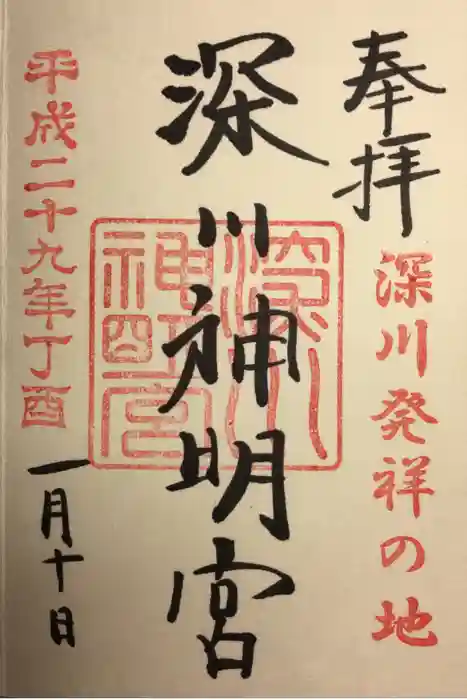 奉拝
深川発祥の地
深川神明宮
深川神明宮
平成二十九年丁酉
一月十日